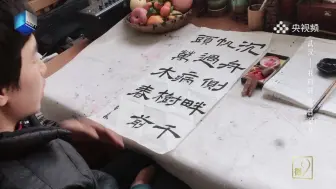 沉舟側畔千
帆過病樹前
頭萬木春
央视频